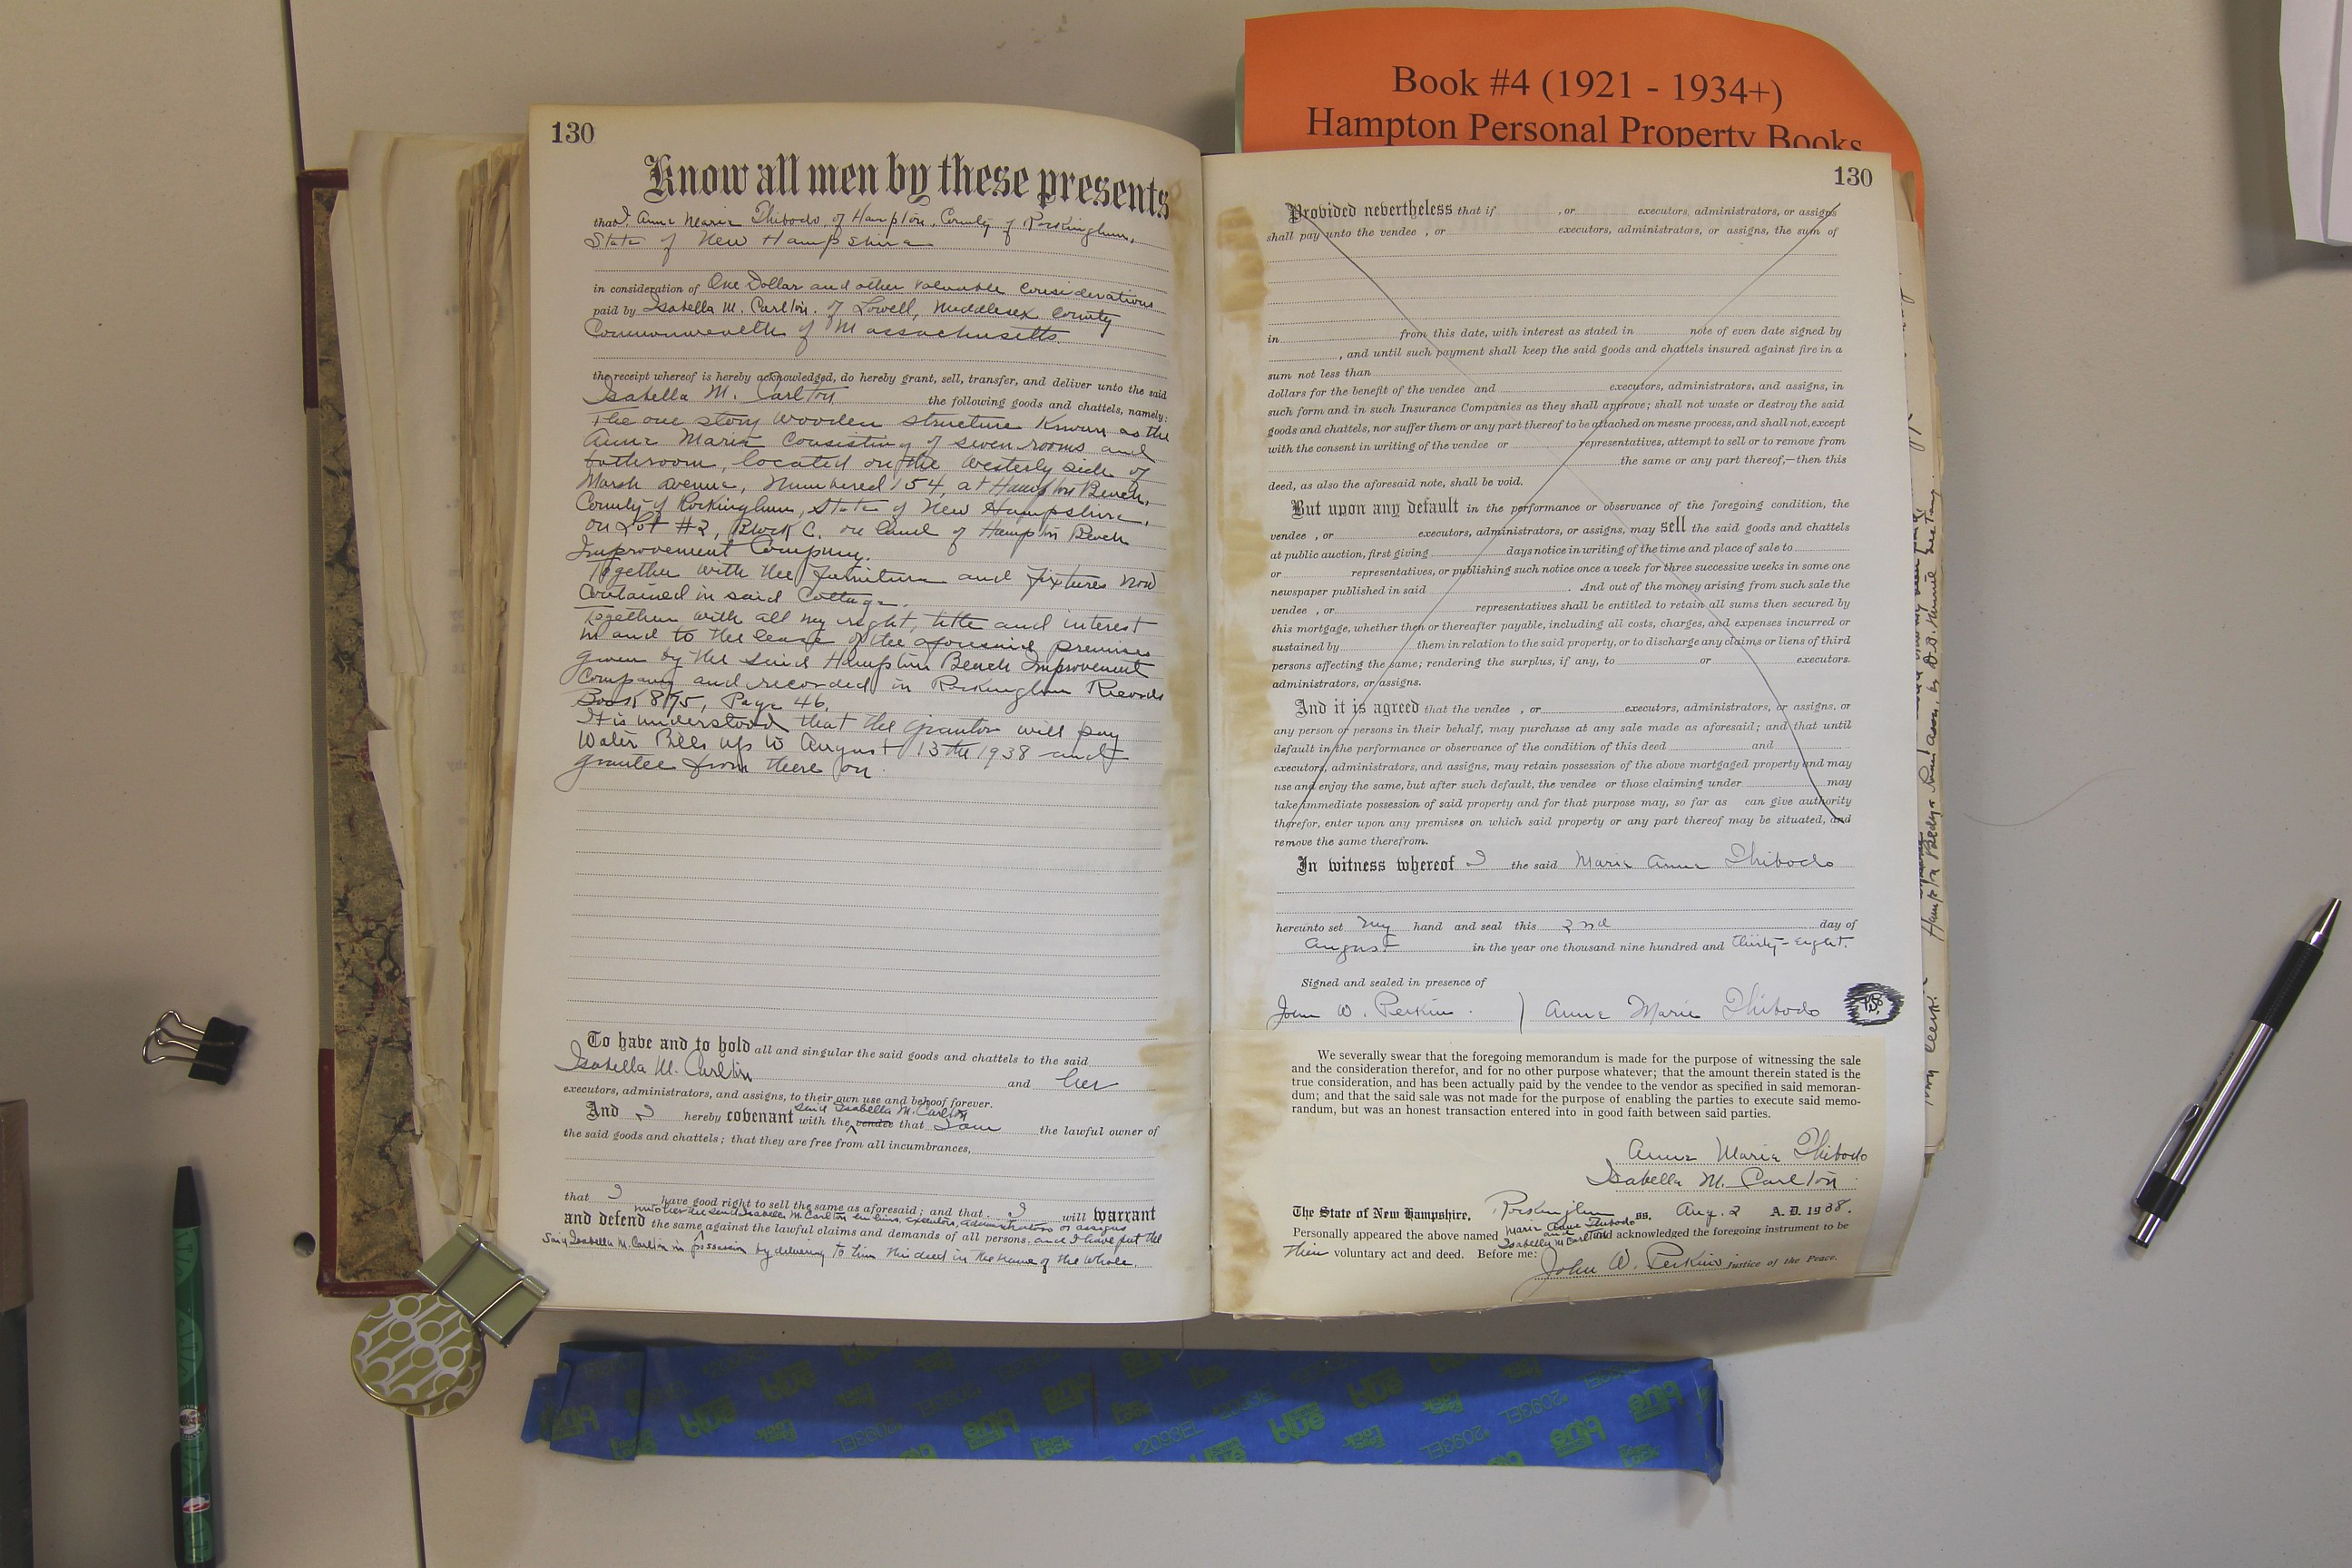 Book #4 (1921 - 1934+)
Hampton Personal Property Books
130
Know all men by these presents
that I, Anne Marie Thibodo, of Hampton, County of Rockingham,
State of New Hampshire
in consideration of One Dollar and other valuable considerations
paid by Isabella M. Carlton. of Lowell, Middlesex County
Commonwealth of Massachusetts.
the receipt whereof is hereby acknowledged, do hereby grant, sell, transfer, and deliver unto the said
Isabella M. Carlton the following goods and chattels, namely:
The one story wooden structure known as the
Anne Marie consisting of seven rooms and
bathroom, located on the Westerly side of
Marsh avenue, numbered 154, at Hampton Beach,
County of Rockingham, State of New Hampshire,
on Lot #2, Block C. on land of Hampton Beach
Improvement Company.
Together with the furniture and fixtures now
contained in said Cottage.
Together with all my right, title and interest
in and to the lease of the aforesaid premises
given by the said Hampton Beach Improvement
Company and recorded in Rockingham Records
Book 895, Page 46.
It is understood that the grantor will pay
Water Bills up to August 13th 1938 and
grantee from there on.
To have and to hold all and singular the said goods and chattels to the said
Isabella M. Carlton and her
executors, administrators, and assigns, to their own use and behoof forever.
said Isabella M. Carlton
And I hereby covenant with the vendee that I am the lawful owner of
the said goods and chattels; that they are free from all incumbrances,
that I have good right to sell the same as aforesaid; and that I will warrant
unto her the said Isabella M. Carlton executors, administrators or assigns
and defend the same against the lawful claims and demands of all persons. and I have put the
said Isabella M. Carlton in possession by delivering to him this deed in the name of the whole.
130
Provided nevertheless that if , or executors, administrators, or assigns
shall pay unto the vendee , or executors, administrators, or assigns, the sum of
in from this date, with interest as stated in note of even date signed by
, and until such payment shall keep the said goods and chattels insured against fire in a
sum not less than
dollars for the benefit of the vendee and executors, administrators, and assigns, in
such form and in such Insurance Companies as they shall approve; shall not waste or destroy the said
goods and chattels, nor suffer them or any part thereof to be attached on mesne process, and shall not, except
with the consent in writing of the vendee or representatives, attempt to sell or to remove from
the same or any part thereof,—then this
deed, as also the aforesaid note, shall be void.
But upon any default in the performance or observance of the foregoing condition, the
vendee , or executors, administrators, or assigns, may sell the said goods and chattels
at public auction, first giving days notice in writing of the time and place of sale to
or representatives, or publishing such notice once a week for three successive weeks in some one
newspaper published in said . And out of the money arising from such sale the
vendee , or representatives shall be entitled to retain all sums then secured by
this mortgage, whether then or thereafter payable, including all costs, charges, and expenses incurred or
sustained by them in relation to the said property, or to discharge any claims or liens of third
persons affecting the same; rendering the surplus, if any, to or executors.
administrators, or assigns.
And it is agreed that the vendee , or executors, administrators, or assigns, or
any person or persons in their behalf, may purchase at any sale made as aforesaid; and that until
default in the performance or observance of the condition of this deed and
executors, administrators, and assigns, may retain possession of the above mortgaged property and may
use and enjoy the same, but after such default, the vendee or those claiming under may
take immediate possession of said property and for that purpose may, so far as can give authority
therefor, enter upon any premises on which said property or any part thereof may be situated, and
remove the same therefrom.
In witness whereof I the said Marie Anne Thibodo
hereunto set my hand and seal this 2nd day of
August in the year one thousand nine hundred and thirty-eight.
Signed and sealed in presence of
John W. Perkins. ) Anne Marie Thibodo
We severally swear that the foregoing memorandum is made for the purpose of witnessing the sale
and the consideration therefor, and for no other purpose whatever; that the amount therein stated is the
true consideration, and has been actually paid by the vendee to the vendor as specified in said memoran-
dum; and that the said sale was not made for the purpose of enabling the parties to execute said memo-
randum, but was an honest transaction entered into in good faith between said parties.
Anne Marie Thibodo
Isabella M. Carlton
The State of New Hampshire, Rockingham ss. Aug. 2 A. D. 1938.
Marie Anne Thibodo
Personally appeared the above named and Isabella M Carlton and acknowledged the foregoing instrument to be
their voluntary act and deed. Before me:
John W. Perkins Justice of the Peace.